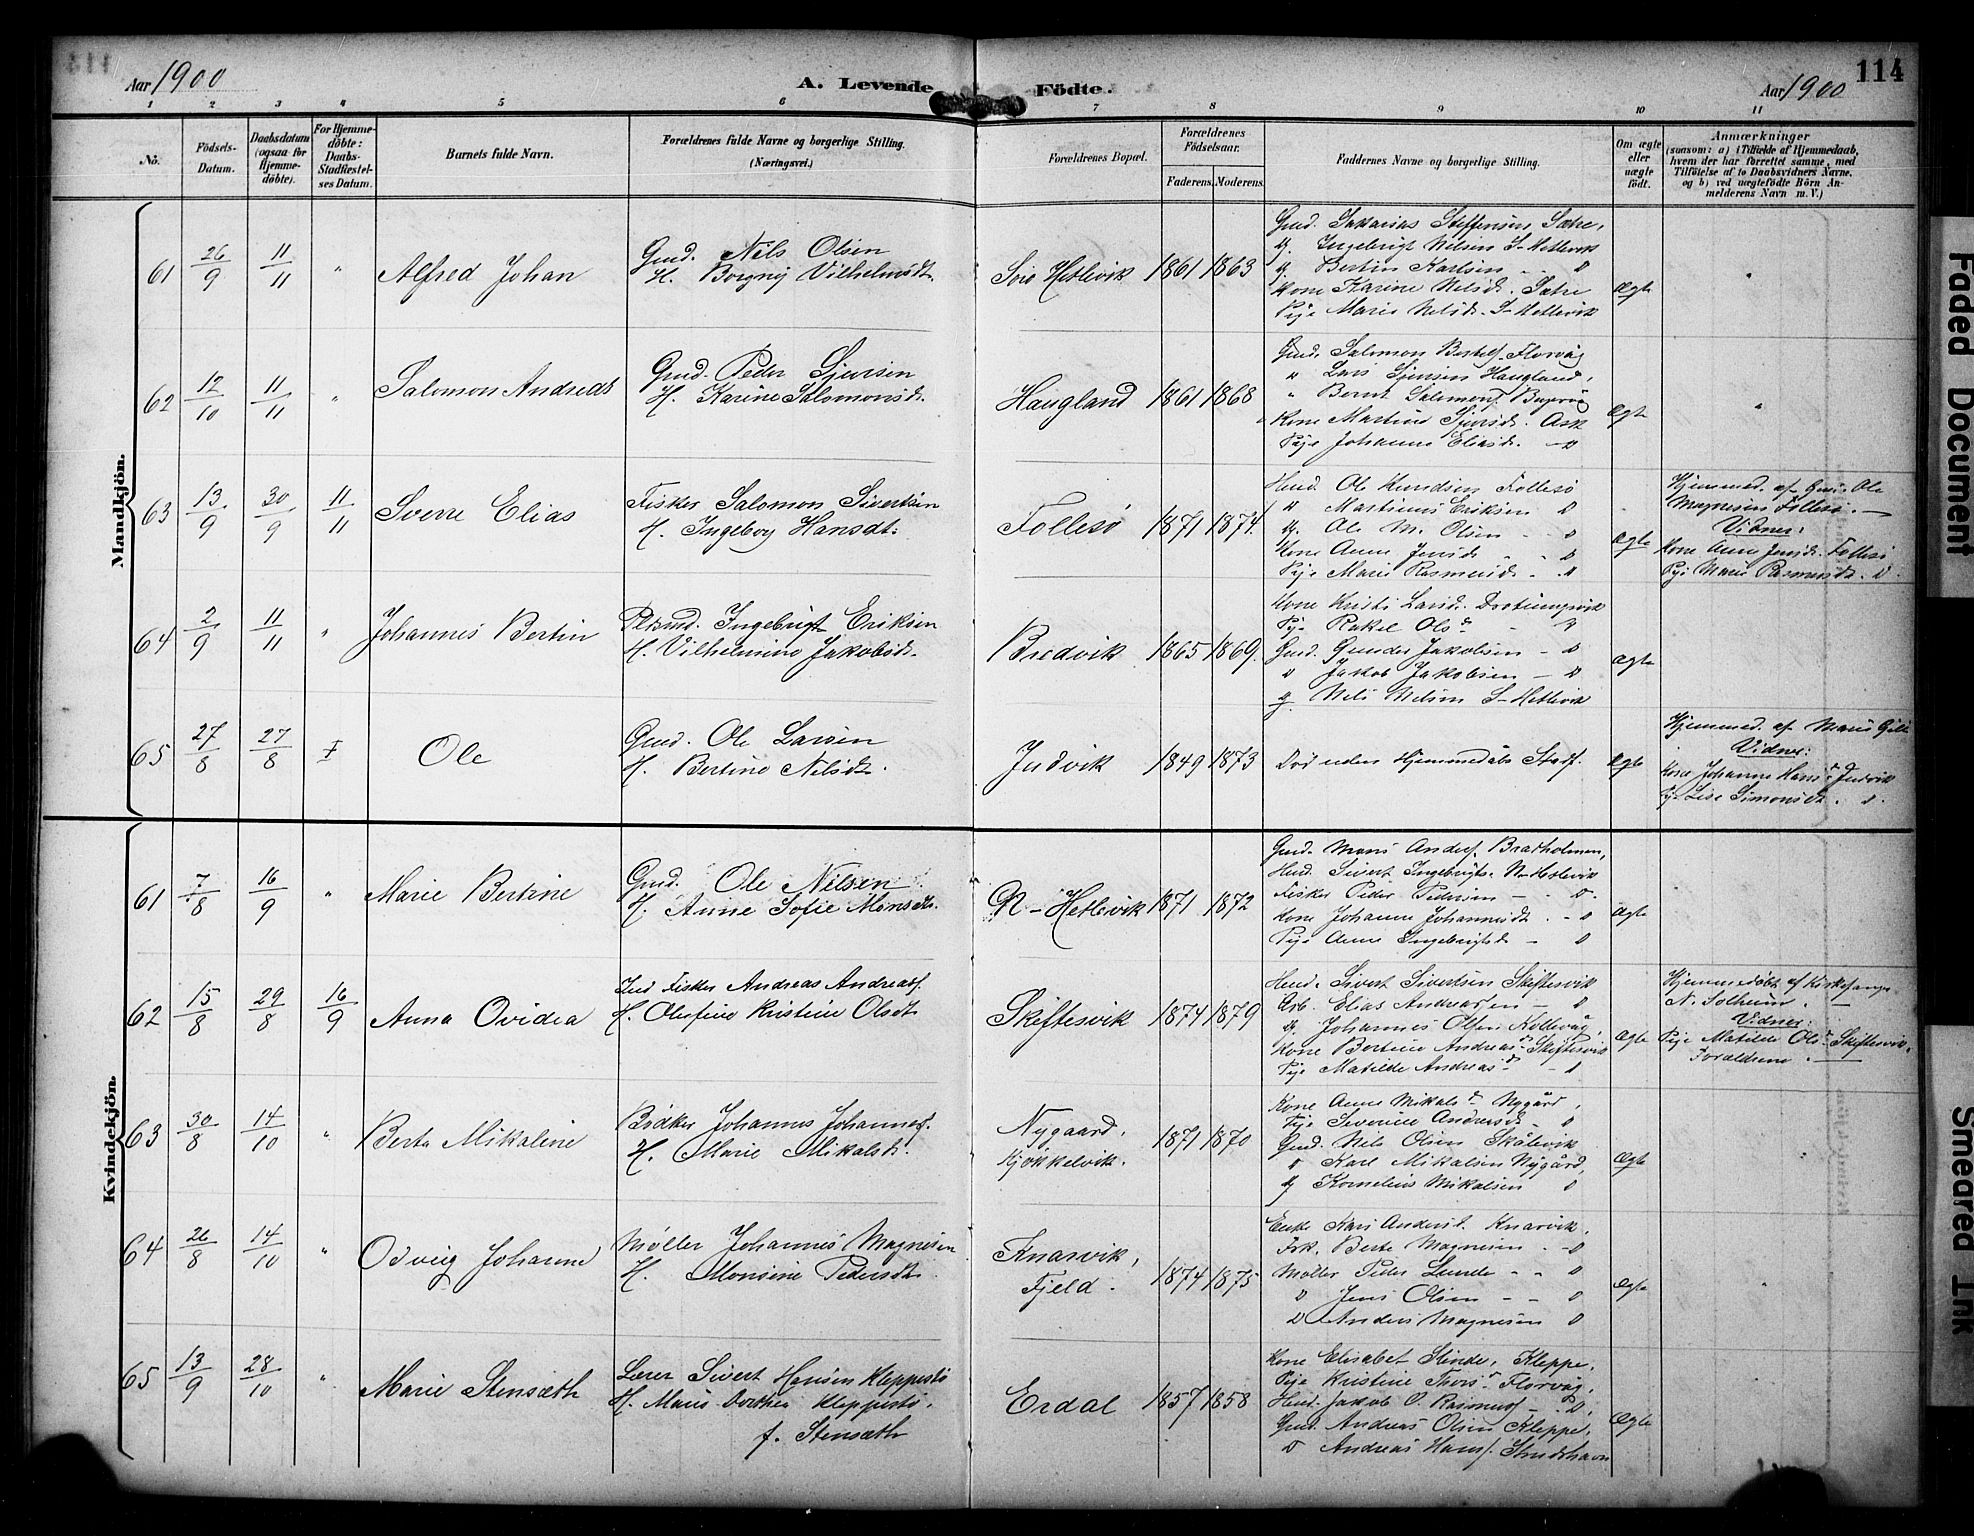 Aar 1900
A. Levende Födte.
Aar 1900
114
1 2 3 4 5 6 7 8 9 10 11
No.
Födsels-Datum.
Daabsdatum (ogsaa for Hjemme-döbte).
For Hjemme-döbte: Daabs-Stadfæstel-ses Datum.
Barnets fulde Navn.
Forældrenes fulde Navne og borgerlige Stilling. (Næringsvei.)
Forældrenes Bopæl.
Forældrenes Födselsaar.
Faderens. Moderens.
Faddernes Navne og borgerlige Stilling.
Om ægte eller uægte födt.
Anmærkninger
(saasom: a) i Tilfælde af Hjemmedaab,
hvem der har forrettet samme, med
Tilföielse af to Daabsvidners Navne,
og b) ved uægtefödte Börn An-
melderens Navn m. V.)
Mandkjön.
61 26/9 11/11 " Alfred Johan
Gmd. Nils Olsen
H. Borgny Vilhelmsdt.
Sör Hetlevik 1861 1863
Gmd. Sakarias Steffensen Sætre,
Uj. Ingebrigt Nilsen S-Hetlevik
Uj. Bertin Karlsen - D
Kone Karine Nilsd. Sætre
Pige Marie Nilsd. S-Hetlevik
Ægte "
62 12/10 11/11 " Salomon Andreas
Gmd. Peder Sjursen
H. Karine Salomonsd.
Haugland 1861 1868
Gmd. Salomon Bertels. Florvåg
" Lars Sjursen Haugland,
" Bernt Salomons.
Kone Martine Sjursd. Ask
Pige Johanne Eliasd. - D
Ægte "
63 13/9 30/9 11/11 Sverre Elias
Fisker Salomon Sivertsen
H. Ingeborg Hansdt.
Follesö 1871 1874.
Hmd. Ole Knudsen Follesö
D Martinus Eriksen D
Uj. Ole M. Olsen - D
Kone Anne Jensd. - D
Pige Marie Rasmusd. - D
Ægte
Hjemmed. af Gmd. Ole
Magnesen Follesö. -
Vidner:
Kone Anne Jensd. Follesö
Pige Marie Rasmusdt. D.
64 2/9 11/11 " Johannes Bertin
Plsmd. Ingebrigt Eriksen
H. Vilhelmine Jakobsd.
Bredvik 1865 1869.
Kone Kristi Larsd.
Pige Rakel Olsd. - D
Gmd. Gunder Jakobsen - D
D Jakob Jakobsen - D
Uj. Nils Nilsen S-Hetlevik
Ægte
65 27/8 27/8 Ole
Gmd. Ole Larsen
H. Bertine Nilsdt.
Indvik 1849 1873
Död uden Hjemmedåbs Stadf.
Ægte
Hjemmed. af Marie
Vidner:
Kone Johanne Hansd. Indvik
Pige Lise Simonsdt. D.
Kvindekjön.
61 7/8 16/9 " Marie Bertine
Gmd. Ole Nilsen
H. Anne Sofie Monsdt.
N-Hetlevik 1871 1872
Gmd. Mons Anders. Bratholmen,
Hmd. Sivert Ingebrigts. N-Hetlevik
Fisker Peder Pedersen - D.
Kone Johanne Johannesdt. - D
Pige Anne Ingebrigtsd. - D
Ægte
62 15/8 29/8 16/9 Anna Ovidia
Ind. Fisker Andreas Andreass.
H. Olefine Kristine Olsdt.
Skiftesvik 1874 1879
Hmd. Sivert Sivertsen Skiftesvik
Arb. Elias Andreassen - D
Uj. Johannes Olsen Kollevåg,
Kone Bertine Andreasd. Skiftesvik
Pige Matilde Andreasd. - D
Ægte
Hjemmedöbt af Kirkesanger
N. Solheim. -
Vidner:
Pige Matilde Olsd. Skiftesvik,
Forældrene. -
63 30/8 14/10 " Berta Mikaline
Bödker Johannes Johanness.
H. Marie Mikalsd.
Nygaard, Kjökkelvik. 1871 1870
Kone Anne Mikalsd. Nygård,
Pige Severine Andersd. - D
Gmd. Nils Olsen Skålevik
D Karl Mikalsen Nygård,
Uj. Kornelius Mikalsen D
Ægte
64 26/8 14/10 " Odveig Johanne
Möller Johannes Magnesen
H. Monsine Pedersdt.
Knarvik, Fjeld. 1874 1875
Enke Kari Andersd. Knarvik,
Frk. Berte Magnesen - D
Möller Peder Lunde - - D
D Jens Olsen - - D
D Anders Magnesen D
Ægte "
65 13/9 28/10 " Marie Stensæth
Lærer Sivert Hansen Kleppestö
H. Marie Dorthea Kleppestö,
f. Stensæth
Erdal 1857 1858
Kone Elisabet Slinde, Kleppe.
Pige Kristine Thorsd. Florvåg,
Hmd. Jakob O. Rasmuss. - D.
Gmd. Andreas Olsen Kleppe,
D Andreas Hans.
Ægte
Faded Document
Smeared Ink